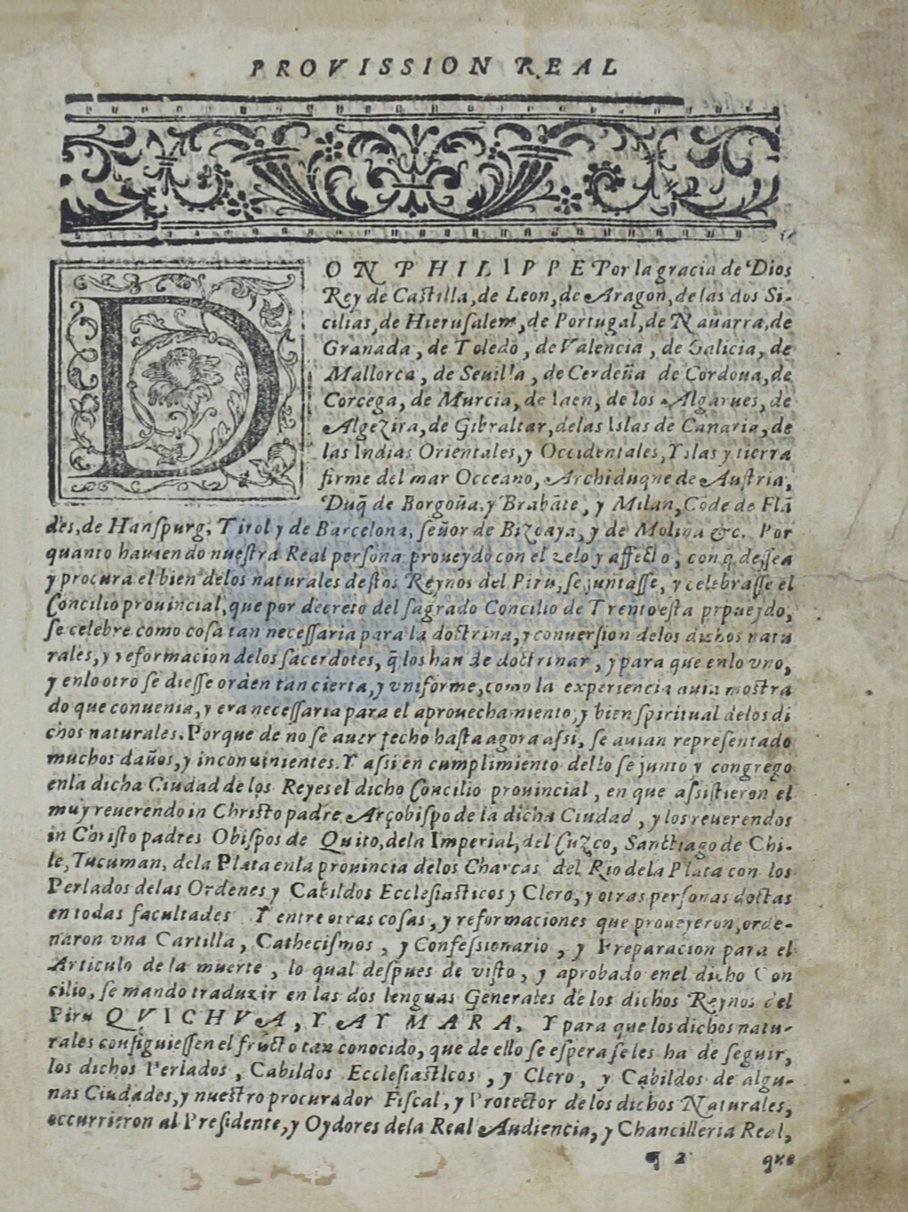 PROVISSION REAL
DON PHILIPPE Por la gracia de Dios
Rey de Castilla, de Leon, de Aragon, de las dos Si-
cilias, de Hierusalem, de Portugal, de Nauarra, de
Granada, de Toledo, de Valencia, de Galicia, de
Mallorca, de Seuilla, de Cerdeña de Cordoua, de
Corcega, de Murcia, de Iaen, de los Algarues, de
Algezira, de Gibraltar, delas Islas de Canaria, de
las Indias Orientales, y Occidentales, Yslas y tierra
firme del mar Occeano, Archiduque de Austria,
Duq̃ de Borgoña, y Brabãte, y Milan, Cõde de Flã
des, de Hanspurg, Tirol y de Barcelona, señor de Bizcaya, y de Molina &c. Por
quanto hauiendo nuestra Real persona proueydo con el zelo y affecto, con q̃ dessea
y procura el bien delos naturales destos Reynos del Piru, se juntasse, y celebrasse el
Concilio prouincial, que por decreto del sagrado Concilio de Trento esta prpueydo,
se celebre como cosa tan necessaria para la doctrina, y conuersion delos dichos natu
rales, y reformacion delos sacerdotes, q̃ los han de doctrinar, y para que enlo vno,
y enlo otro se diesse orden tan cierta, y vniforme, como la experiencia auia mostra
do que conuenia, y era necessaria para el aprouechamiento, y bien spiritual delos di
chos naturales. Porque de no se auer fecho hasta agora assi, se auian representado
muchos daños, y inconuinientes. Y assi en cumplimiento dello se junto y congrego
enla dicha Ciudad de los Reyes el dicho Concilio prouincial, en que assistieron el
muy reuerendo in Christo padre Arçobispo de la dicha Ciudad, y los reuerendos
in Christo padres Obispos de Quito, dela Imperial, del Cuzco, Sanctiago de Chi-
le, Tucuman, dela Plata enla prouincia delos Charcas del Rio dela Plata con los
Perlados delas Ordenes y Cabildos Ecclesiasticos y Clero, y otras personas doctas
en todas facultades Y entre otras cosas, y reformaciones que proueyeron, orde-
naron vna Cartilla, Cathecismos, y Confessionario, y Preparacion para el
Articulo de la muerte, lo qual despues de visto, y aprobado enel dicho Con
cilio, se mando traduzir en las dos lenguas Generales de los dichos Reynos del
Piru QVICHVA, Y AYMARA, Y para que los dichos natu-
rales consiguiessen el fructo tan conocido, que de ello se espera se les ha de seguir,
los dichos Perlados, Cabildos Ecclesiasticos, y Clero, y Cabildos de algu-
nas Ciudades, y nuestro procurador Fiscal, y Protector de los dichos Naturales,
occurrieron al Presidente, y Oydores dela Real Audiencia, y Chancilleria Real,
¶ 2 que